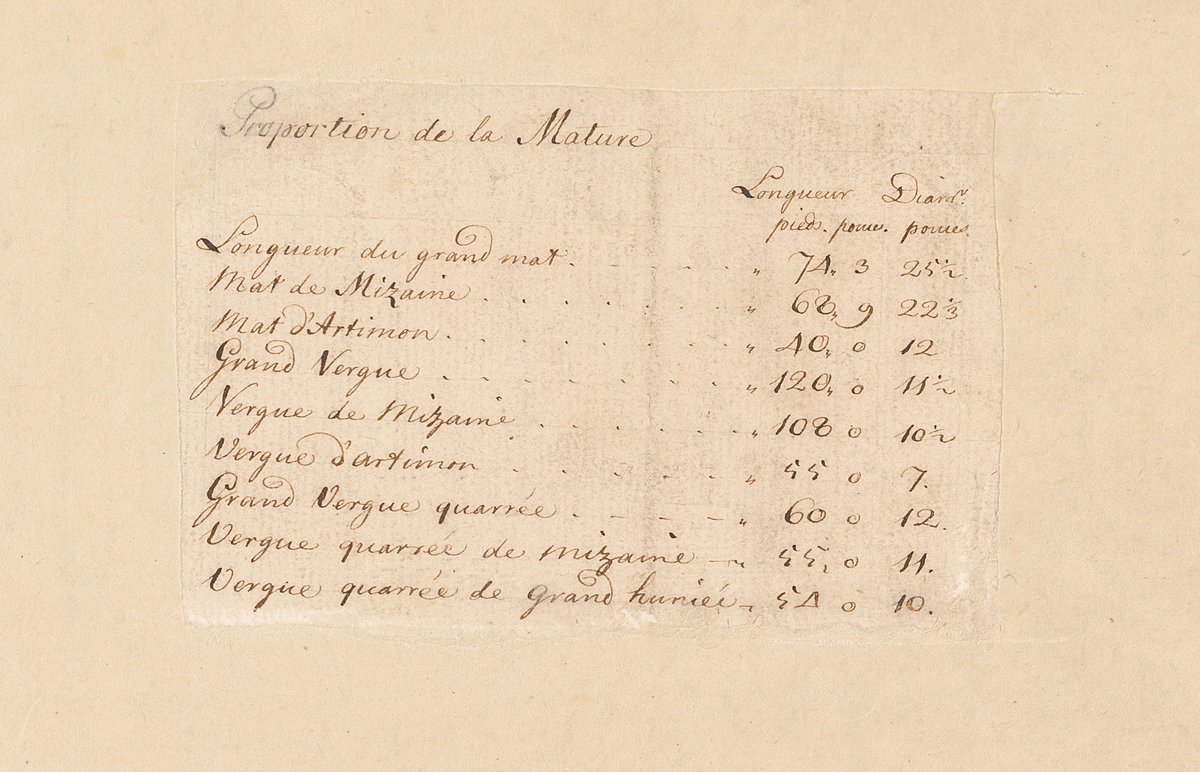 Proportion de la Mature
Longueur Diamr.
pieds. pouce. pouces.
Longueur du grand mat . . . . . . „ 74„ 3 25½
Mat de Mizaine . . . . . . . „ 68„ 9 22⅓
Mat d'Artimon . . . . . . . . „ 40„ 0 12
Grand Vergue . . . . . . . . „ 120„ 0 11½
Vergue de Mizaine . . . . . . „ 108 0 10½
Vergue d'artimon . . . . . . „ 55 0 7.
Grand Vergue quarrée . – – – „ 60 0 12.
Vergue quarrée de mizaine – „ 55, 0 11.
Vergue quarrée de grand huniéé „ 54 0 10.